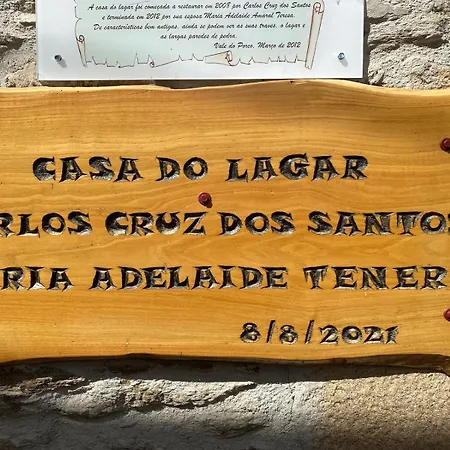 A casa do lagar foi começada a restaurar em 2008 por Carlos Cruz dos Santos
e terminada em 2012 por sua esposa Maria Adelaide Amaral Teresa.
De características bem antigas, ainda se podem ver as suas traves, o lagar e
as largas paredes de pedra.
Vale do Porco, Março de 2012
CASA DO LAGAR
RLOS CRUZ DOS SANTOS
RIA ADELAIDE TENER
8/8/2021